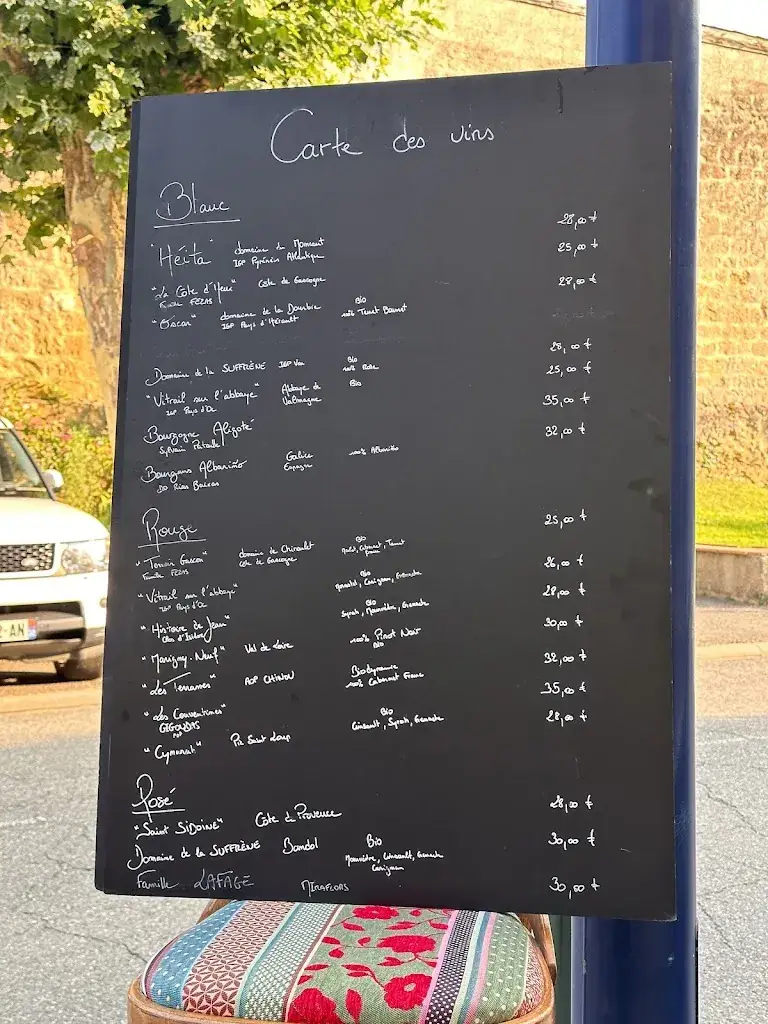 Carte des vins
Blanc
28,00 €
"Héita" domaine du Moncaut
IGP Pyrénées Atlantique
25,00 €
"La Côte d'Heux" Côte de Gascogne
Famille FEZAS
28,00 €
"Oscar" domaine de la Dourbie Bio
IGP Pays d'Hérault 100% Terret Bourret
Domaine de la SUFFRÈNE IGP Var Bio
100% Rolle
28,00 €
"Vitrail sur l'abbaye" Abbaye de Valmagne Bio
IGP Pays d'Oc
25,00 €
Bourgogne Aligoté
Sylvain Pataille
35,00 €
Bouzgans Albariño Galice 100% Albariño
DO Rias Baixas Espagne
32,00 €
Rouge
25,00 €
"Terroir Gascon" domaine de Chiroulet Bio
Famille FEZAS Côte de Gascogne Merlot, Cabernet, Tannat
franc
"Vitrail sur l'abbaye" Bio
IGP Pays d'Oc Carignan, Grenache
26,00 €
"Histoire de Jean" Bio
Syrah, Mourvèdre, Grenache
28,00 €
"Marigny-Neuf" Val de Loire 100% Pinot Noir
Bio
30,00 €
"Les Terrasses" AOP CHINON Biodynamie
100% Cabernet Franc
32,00 €
"Les Conventines" Bio
GIGONDAS Cinsault, Syrah, Grenache
AOP
35,00 €
"Cymarat" Pic Saint Loup
28,00 €
Rosé
"Saint SIDOINE" Côte de Provence 28,00 €
Domaine de la SUFFRÈNE Bandol Bio 30,00 €
Mourvèdre, Cinsault, Grenache
Carignan
Famille LAFAGE MIRAFLORS 30,00 €